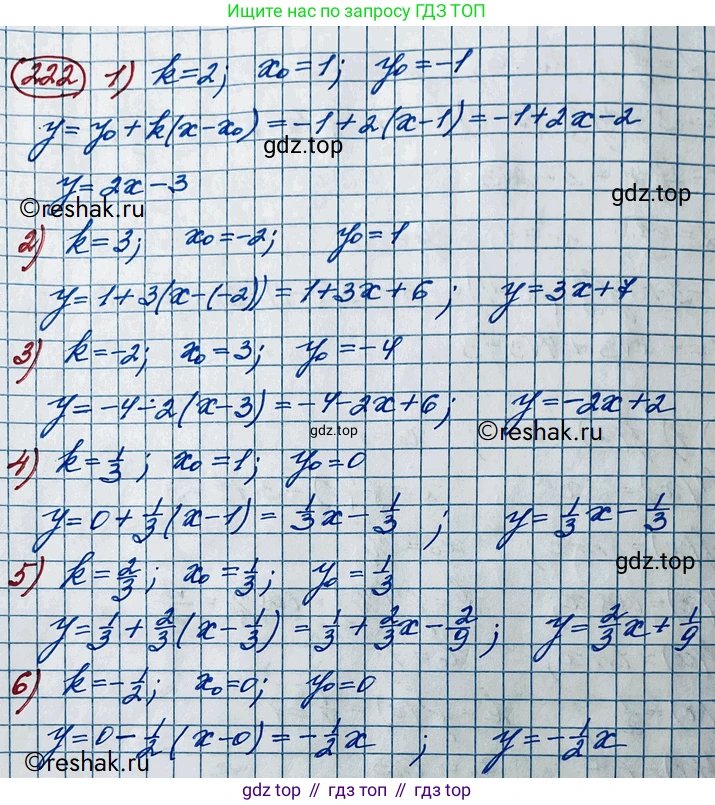 Ищите нас по запросу ГДЗ ТОП
222 1) k=2; x₀=1; y₀=-1
y=y₀+k(x-x₀)=-1+2(x-1)=-1+2x-2
gdz.top
y=2x-3
gdz.top
©reshak.ru
2) k=3; x₀=-2; y₀=1
y=1+3(x-(-2))=1+3x+6; y=3x+7
3) k=-2; x₀=3; y₀=-4
y=-4-2(x-3)=-4-2x+6; y=-2x+2
gdz.top
©reshak.ru
4) k=1/3; x₀=1; y₀=0
y=0+1/3(x-1)=1/3x-1/3; y=1/3x-1/3
gdz.top
5) k=2/3; x₀=1/3; y₀=1/3
y=1/3+2/3(x-1/3)=1/3+2/3x-2/9; y=2/3x+1/9
6) k=-1/2; x₀=0; y₀=0
y=0-1/2(x-0)=-1/2x; y=-1/2x
©reshak.ru
gdz top // гдз топ // gdz.top